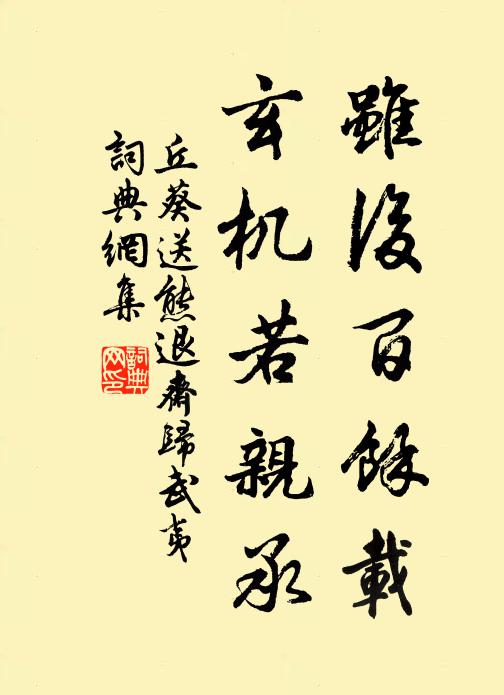 雖後百餘載
玄机若親承
丘葵送熊退齋歸武夷
詞典網集
詞典網印